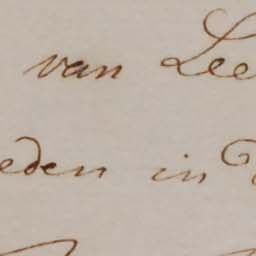 van Lee
eden in